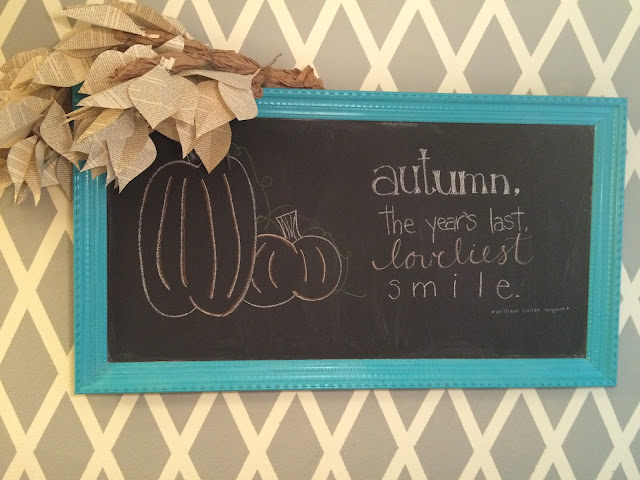 autumn,
the year's last,
loveliest
smile.
William Cullen Bryant